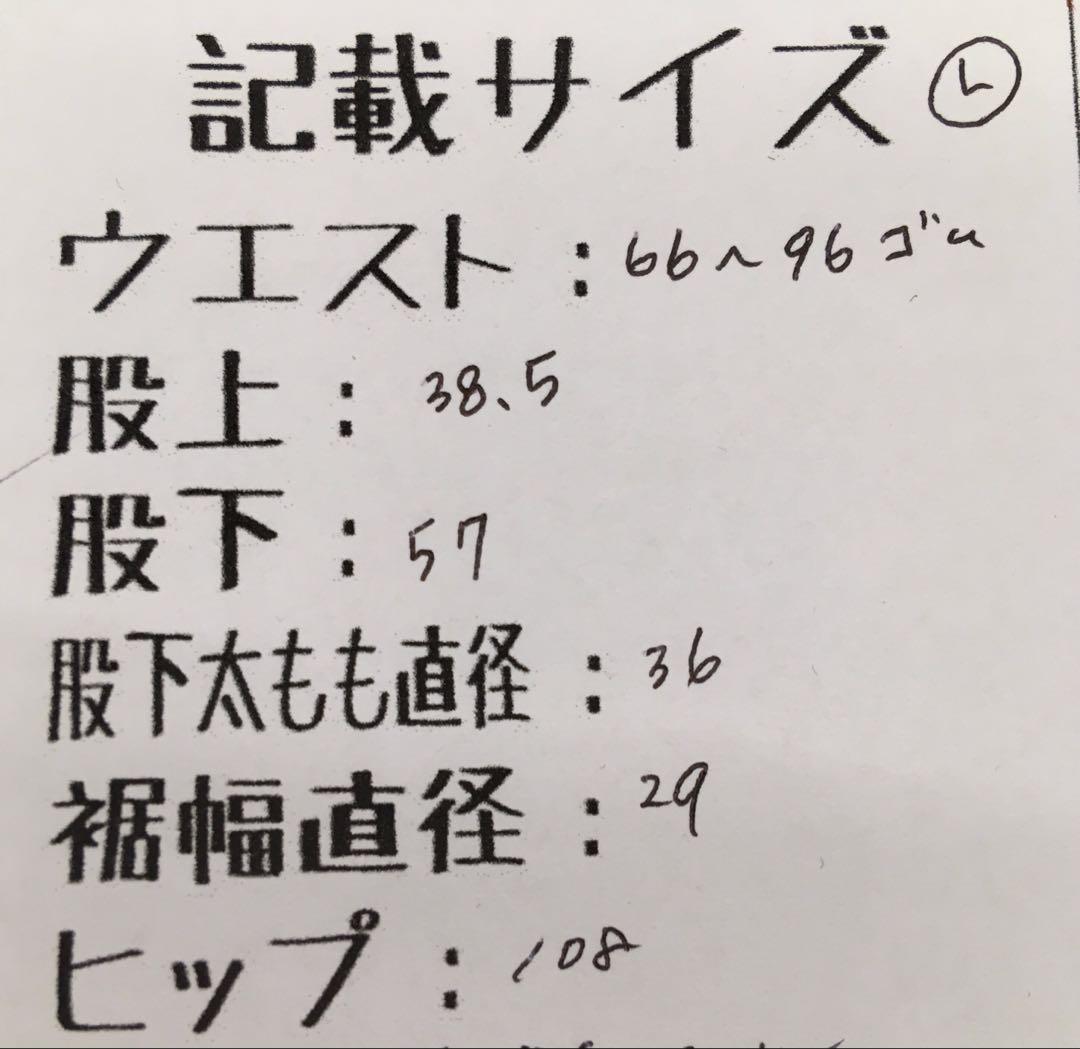 記載サイズ Ⓛ
ウエスト：66～96 ゴム
股上：38.5
股下：57
股下太もも直径：36
裾幅直径：29
ヒップ：108